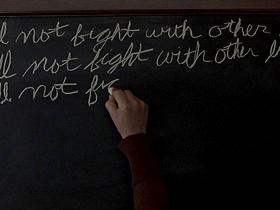 not fight with other
ll not fight with other
not fi